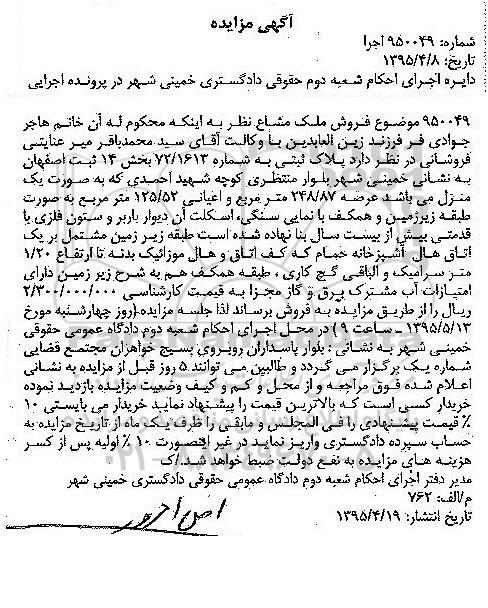 آگهی مزایده
شماره: ۹۵۰۰۴۹ اجرا
تاریخ: ۱۳۹۵/۴/۸
دایره اجرای احکام شعبه دوم حقوقی دادگستری خمینی شهر در پرونده اجرایی
۹۵۰۰۴۹ موضوع فروش ملک مشاع نظر به اینکه محکوم له آن خانم هاجر
جوادی فر فرزند زین العابدین با وکالت آقای سید محمدباقر میر عنایتی
فروشانی در نظر دارد پلاک ثبتی به شماره ۷۲/۱۶۱۳ بخش ۱۴ ثبت اصفهان
به نشانی خمینی شهر بلوار منتظری کوچه شهید احمدی که به صورت یک
منزل می باشد عرصه ۲۴۸/۸۷ متر مربع و اعیانی ۱۲۵/۵۲ متر مربع به صورت
طبقه زیرزمین و همکف با نمایی سنگی، اسکلت آن دیوار باربر و ستون فلزی با
قدمتی بیش از بیست سال بنا نهاده شده است طبقه زیر زمین مشتمل بر یک
اتاق هال آشپزخانه حمام که کف اتاق و هال موزائیک بدنه تا ارتفاع ۱/۲۰
متر سرامیک و الباقی گچ کاری ، طبقه همکف هم به شرح زیر زمین دارای
امتیازات آب مشترک برق و گاز مجزا به قیمت کارشناسی ۲/۳۰۰/۰۰۰/۰۰۰
ریال را از طریق مزایده به فروش برساند لذا جلسه مزایده (روز چهارشنبه مورخ
۱۳۹۵/۵/۱۳ ـ ساعت ۹ ) در محل اجرای احکام شعبه دوم دادگاه عمومی حقوقی
خمینی شهر به نشانی : بلوار پاسداران روبروی بسیج خواهران مجتمع قضایی
شماره یک برگزار می گردد و طالبین می توانند ۵ روز قبل از مزایده به نشانی
اعلام شده فوق مراجعه و از محل و کم و کیف وضعیت مزایده بازدید نموده
خریدار کسی است که بالاترین قیمت را پیشنهاد نماید خریدار می بایستی ۱۰
٪ قیمت پیشنهادی را فی المجلس و مابقی را ظرف یکماه از تاریخ مزایده به
حساب سپرده دادگستری واریز نماید در غیر اینصورت ۱۰ ٪ اولیه پس از کسر
هزینه های مزایده به نفع دولت ضبط خواهد شد./ک
مدیر دفتر اجرای احکام شعبه دوم دادگاه عمومی حقوقی دادگستری خمینی شهر
م/الف: ۷۶۲
تاریخ انتشار: ۱۳۹۵/۴/۱۹